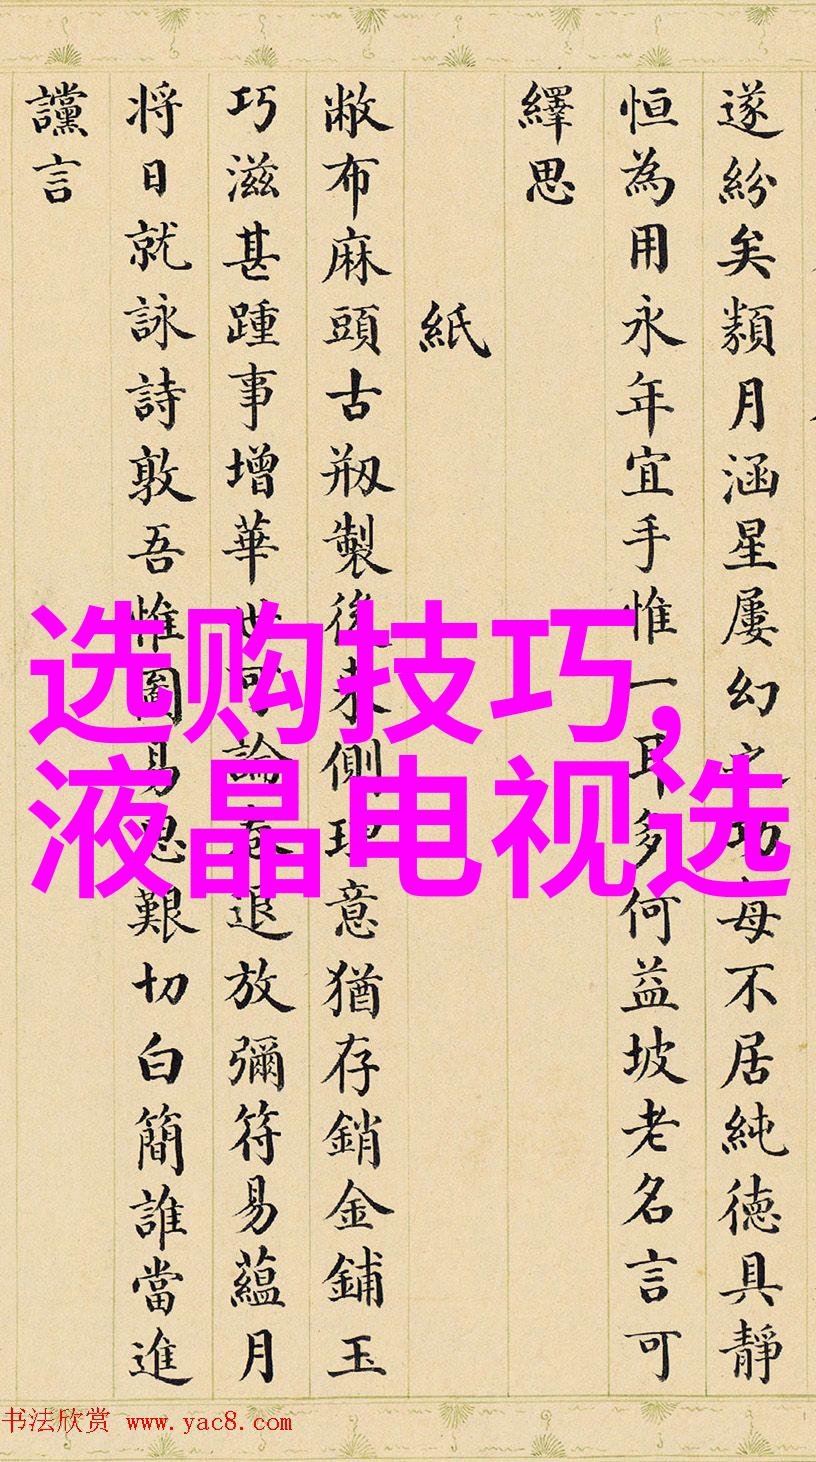 遂紛矣類月涵星屢幻之功每不居純德具靜
恒為用永年宜手惟一耳多何益坡老名言可
繹思
紙
敝布麻頭古剏製後来側理意猶存銷金鋪玉
巧滋甚踵事增華世可論卷退放彌符易蘊月
将日就詠詩敦吾惟圖易思艱切白簡誰當進
讜言
选购技巧,
液晶电视选
书法欣赏 www.yac8.com